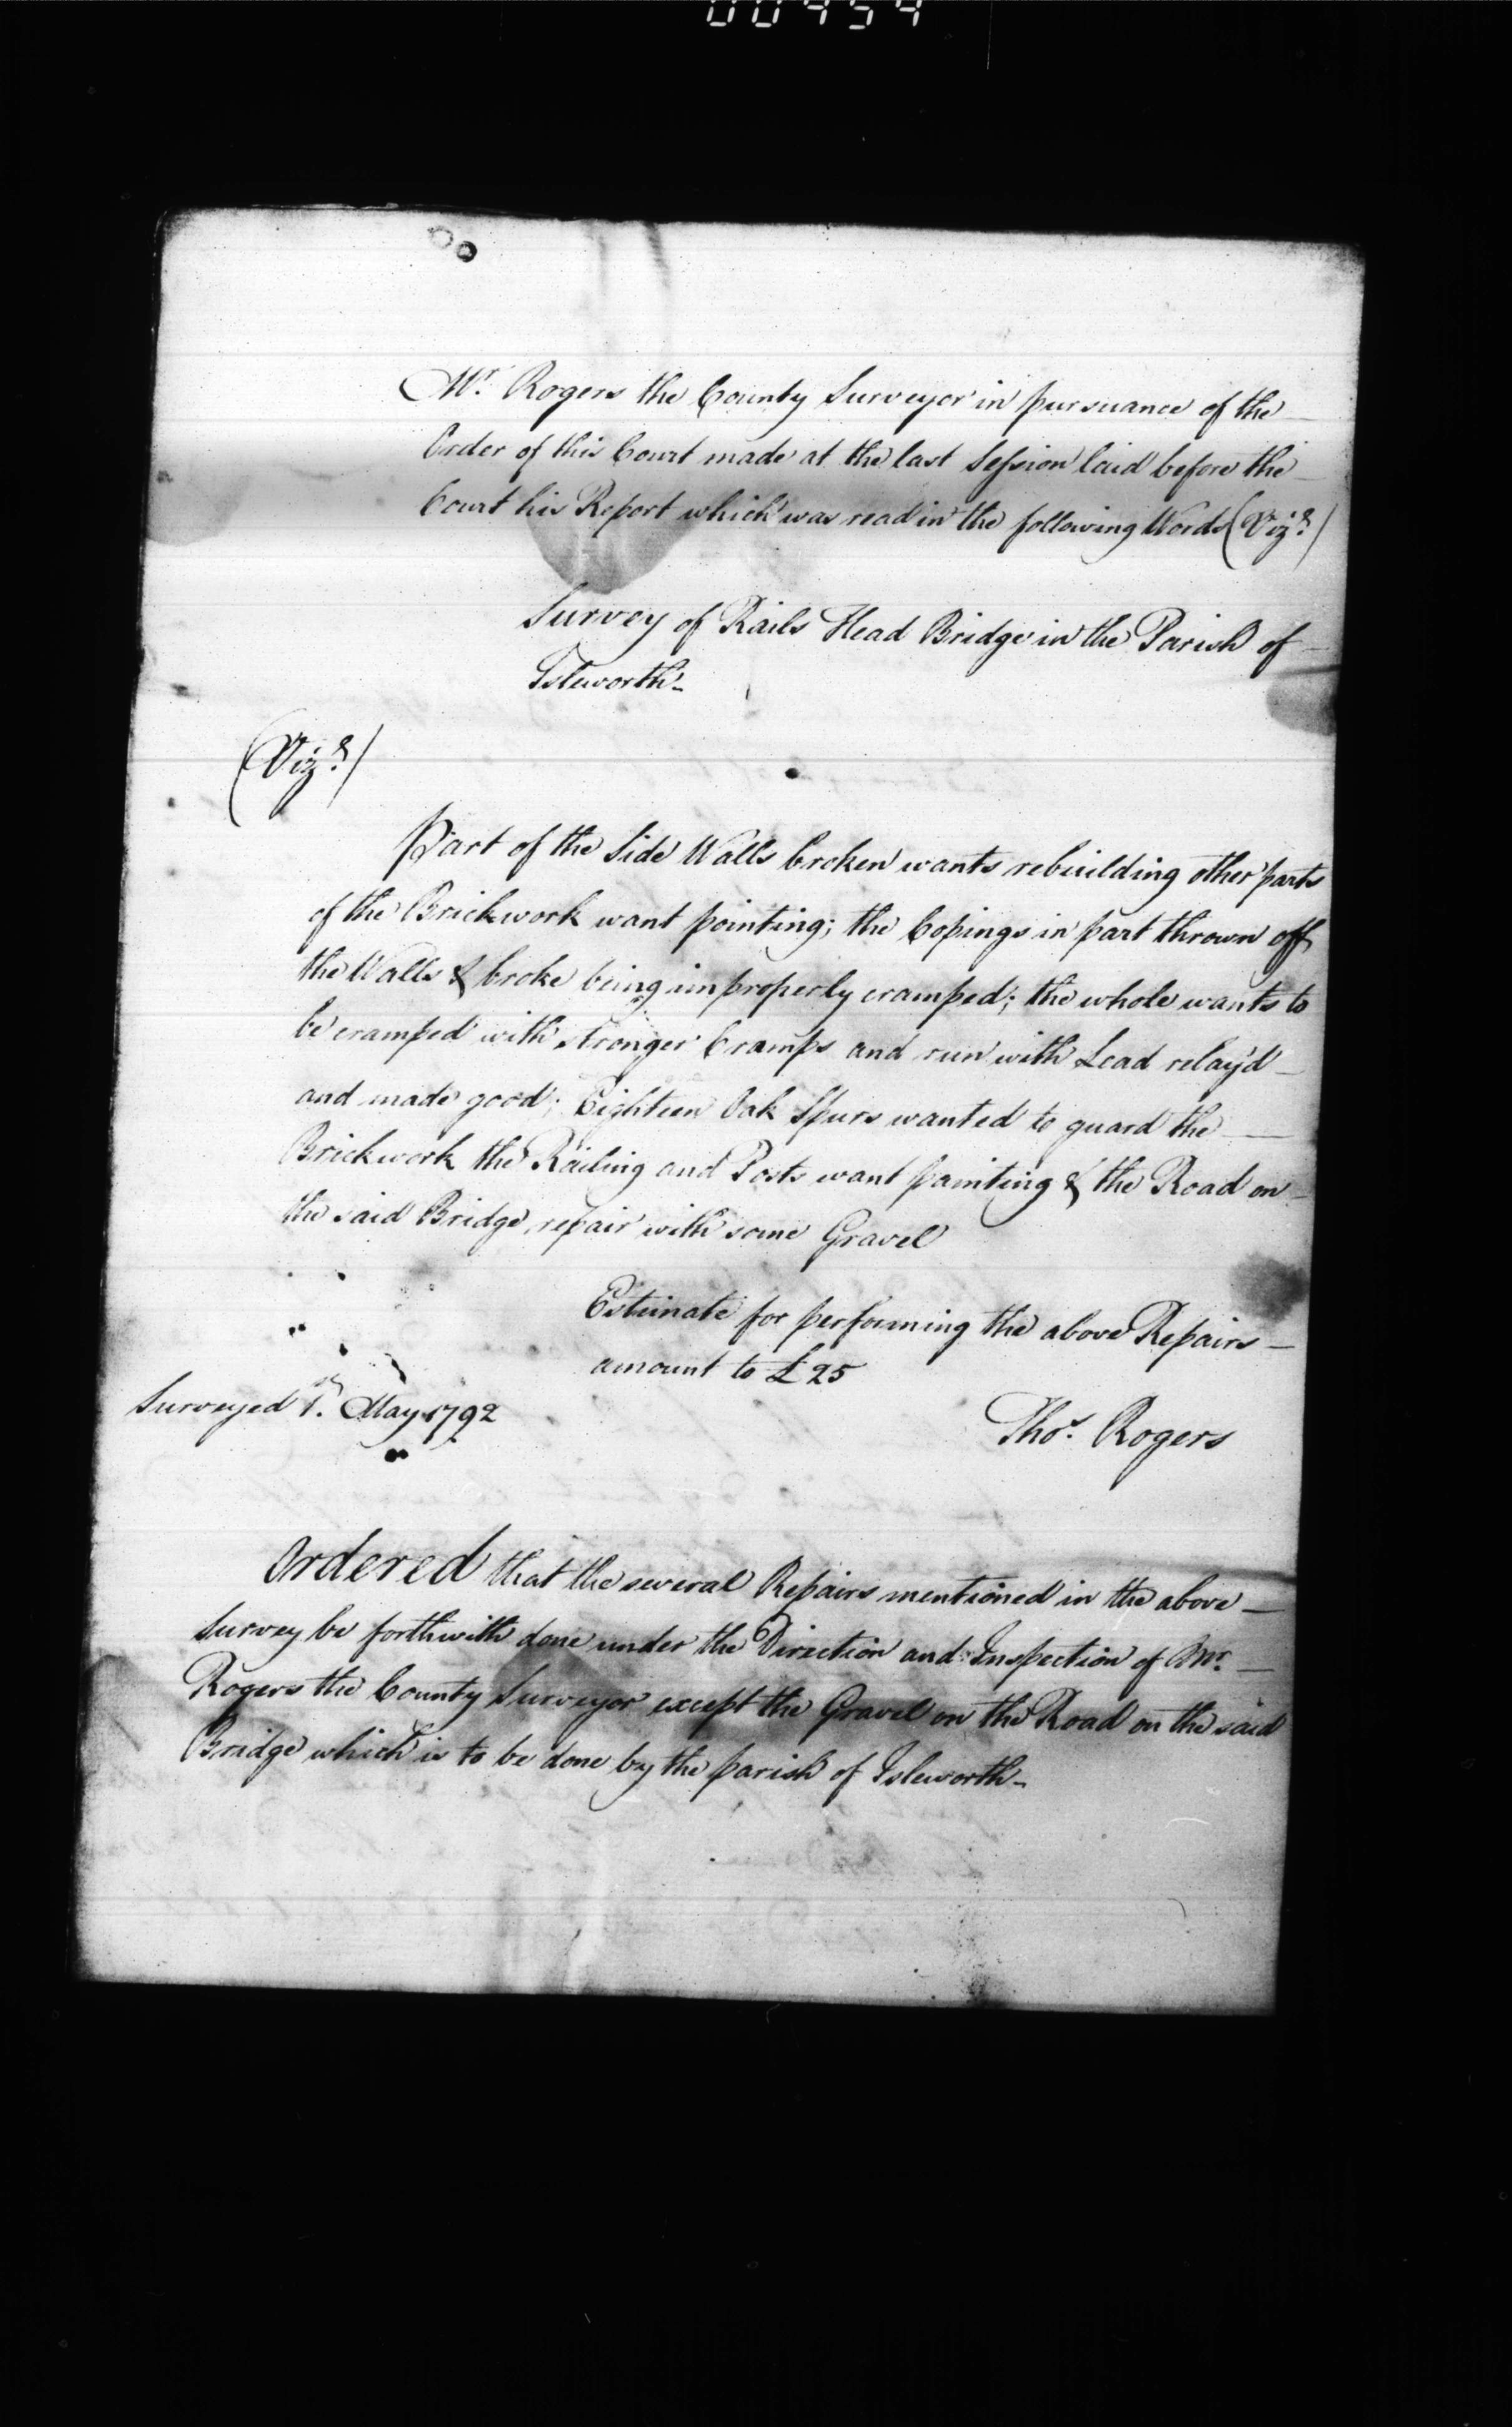 00454
Mr. Rogers the County Surveyor in pursuance of the
Order of this Court made at the last Session laid before the
Court his Report which was read in the following Words (Vizt.)
Survey of Rails Head Bridge in the Parish of
Isleworth
(Vizt.)
Part of the Side Walls broken wants rebuilding other parts
of the Brickwork want pointing; the Copings in part thrown off
the Walls & broke being improperly cramped; the whole wants to
be cramped with stronger Cramps and run with Lead relay'd
and made good; Eighteen Oak Spurs wanted to guard the
Brickwork the Railing and Posts want painting & the Road on
the said Bridge repair with some Gravel
Estimate for performing the above Repairs
amount to £25
Surveyed 1st. May 1792
Thos. Rogers
Ordered that the several Repairs mentioned in the above
Survey be forthwith done under the Direction and Inspection of Mr.
Rogers the County Surveyor except the Gravel on the Road on the said
Bridge which is to be done by the parish of Isleworth